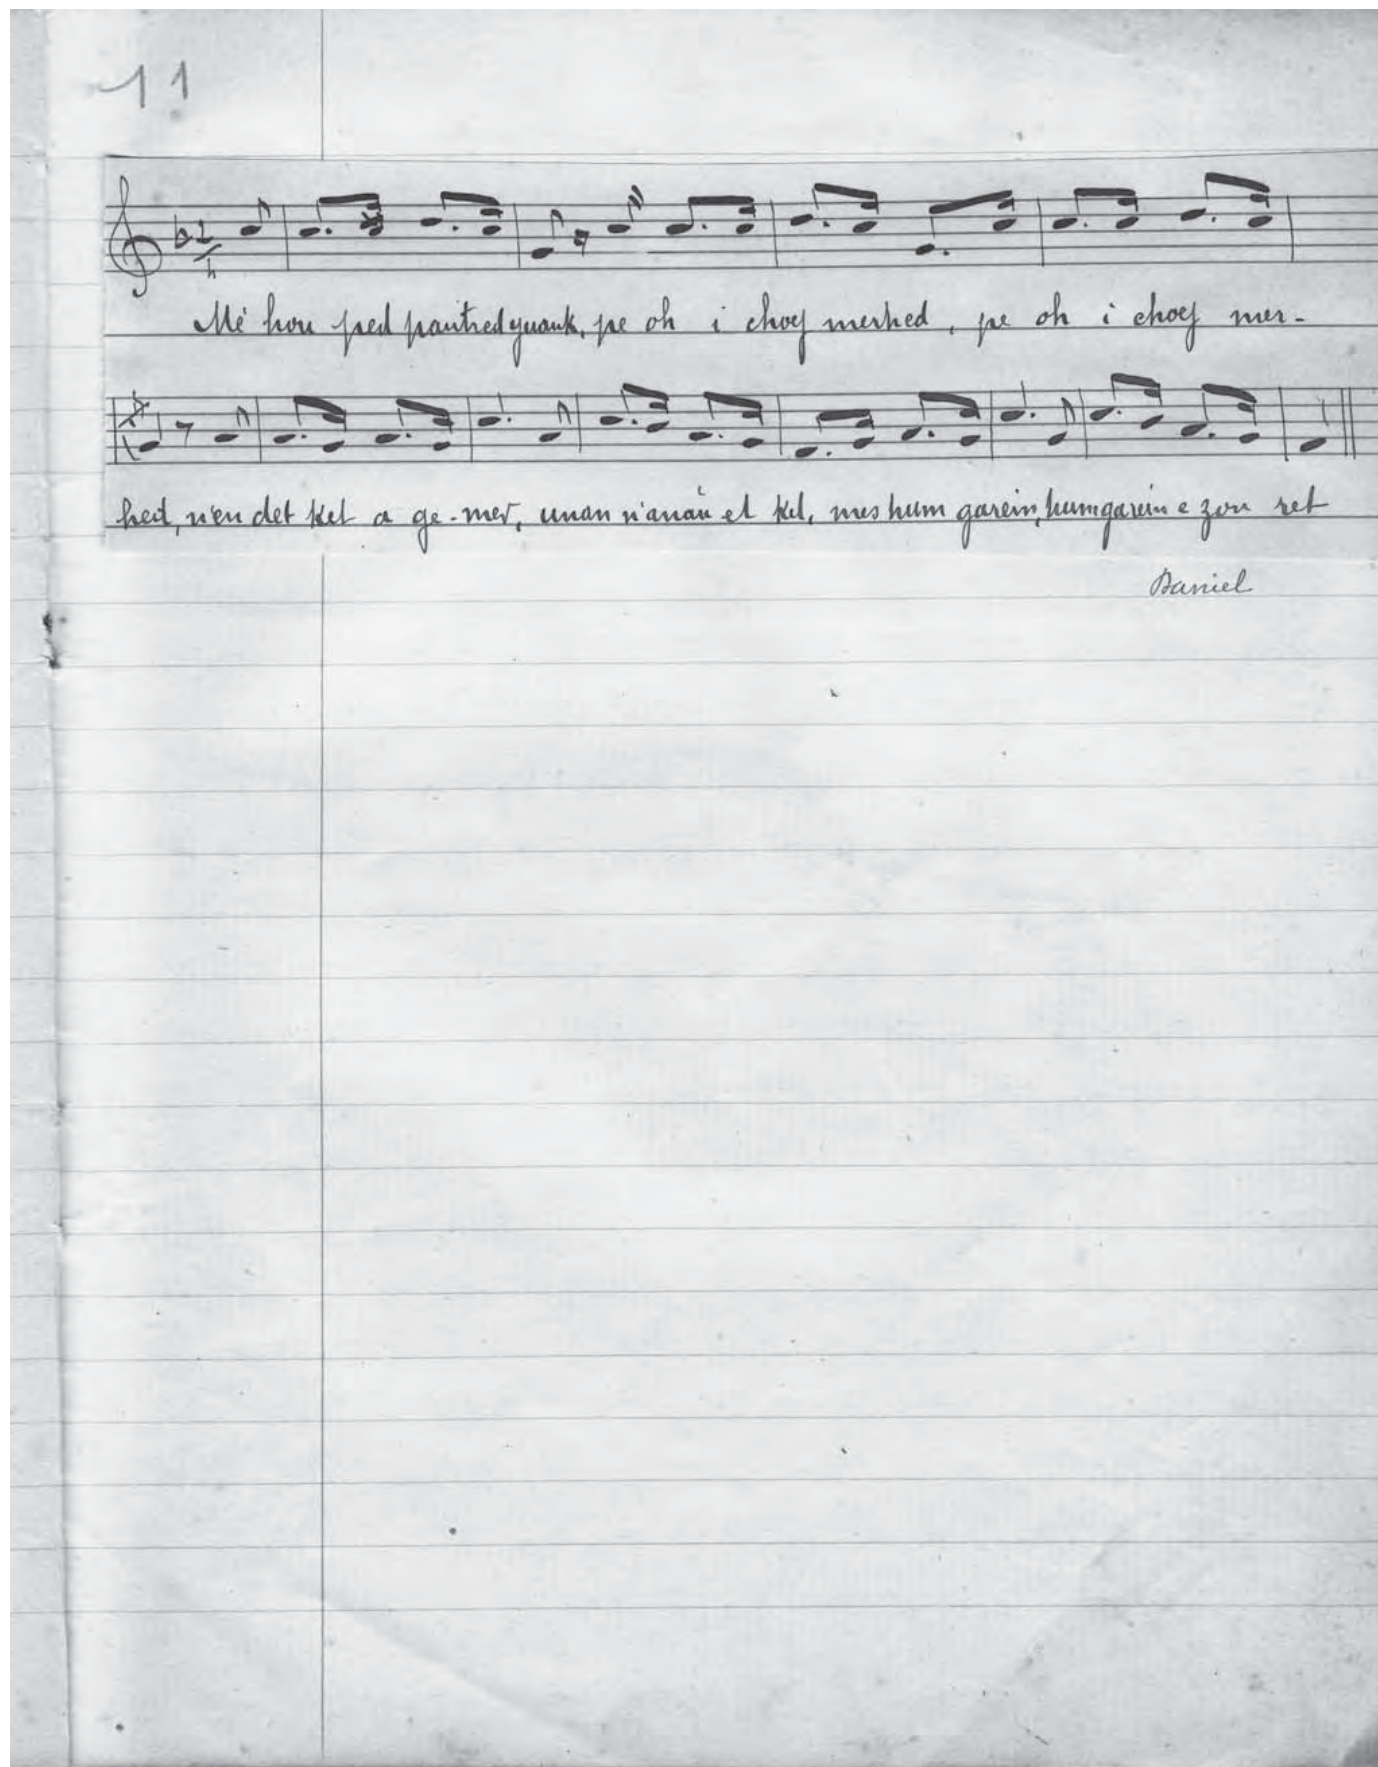 11
2
4
Mé hou ped pautred yuank, pe oh i choej merhed, pe oh i choej mer-
hed, n'en det ket a ge-mer, unan n'anaù et ket, mes hum garein, hum garein e zou ret
Daniel